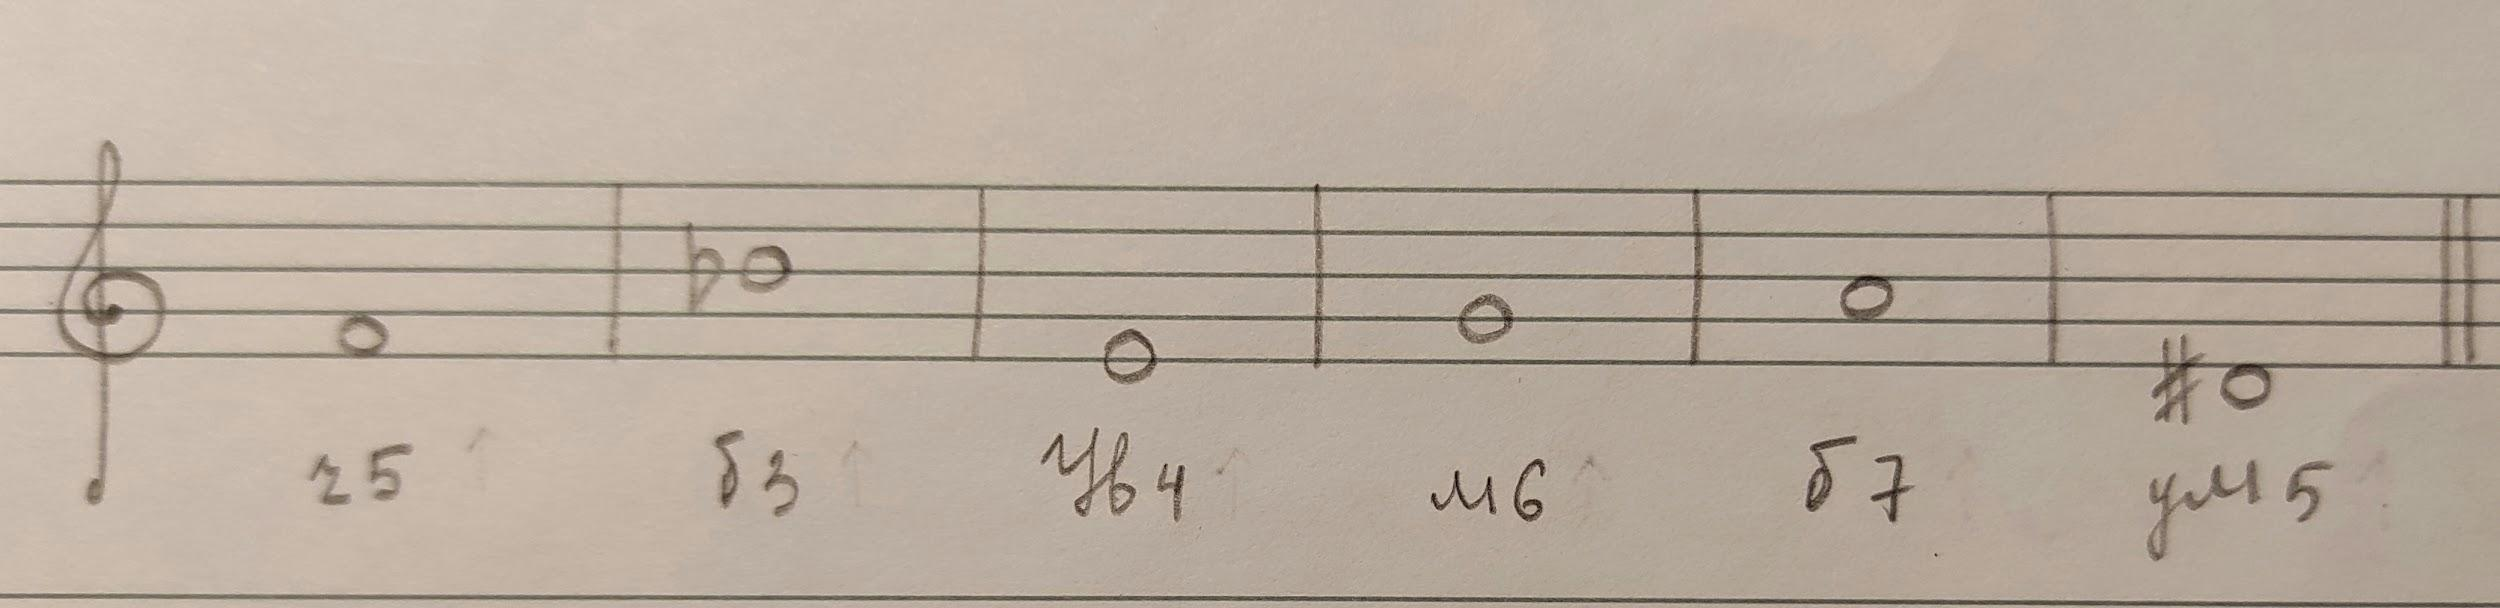 ч5 б3 Ув4 м6 б7 ум5